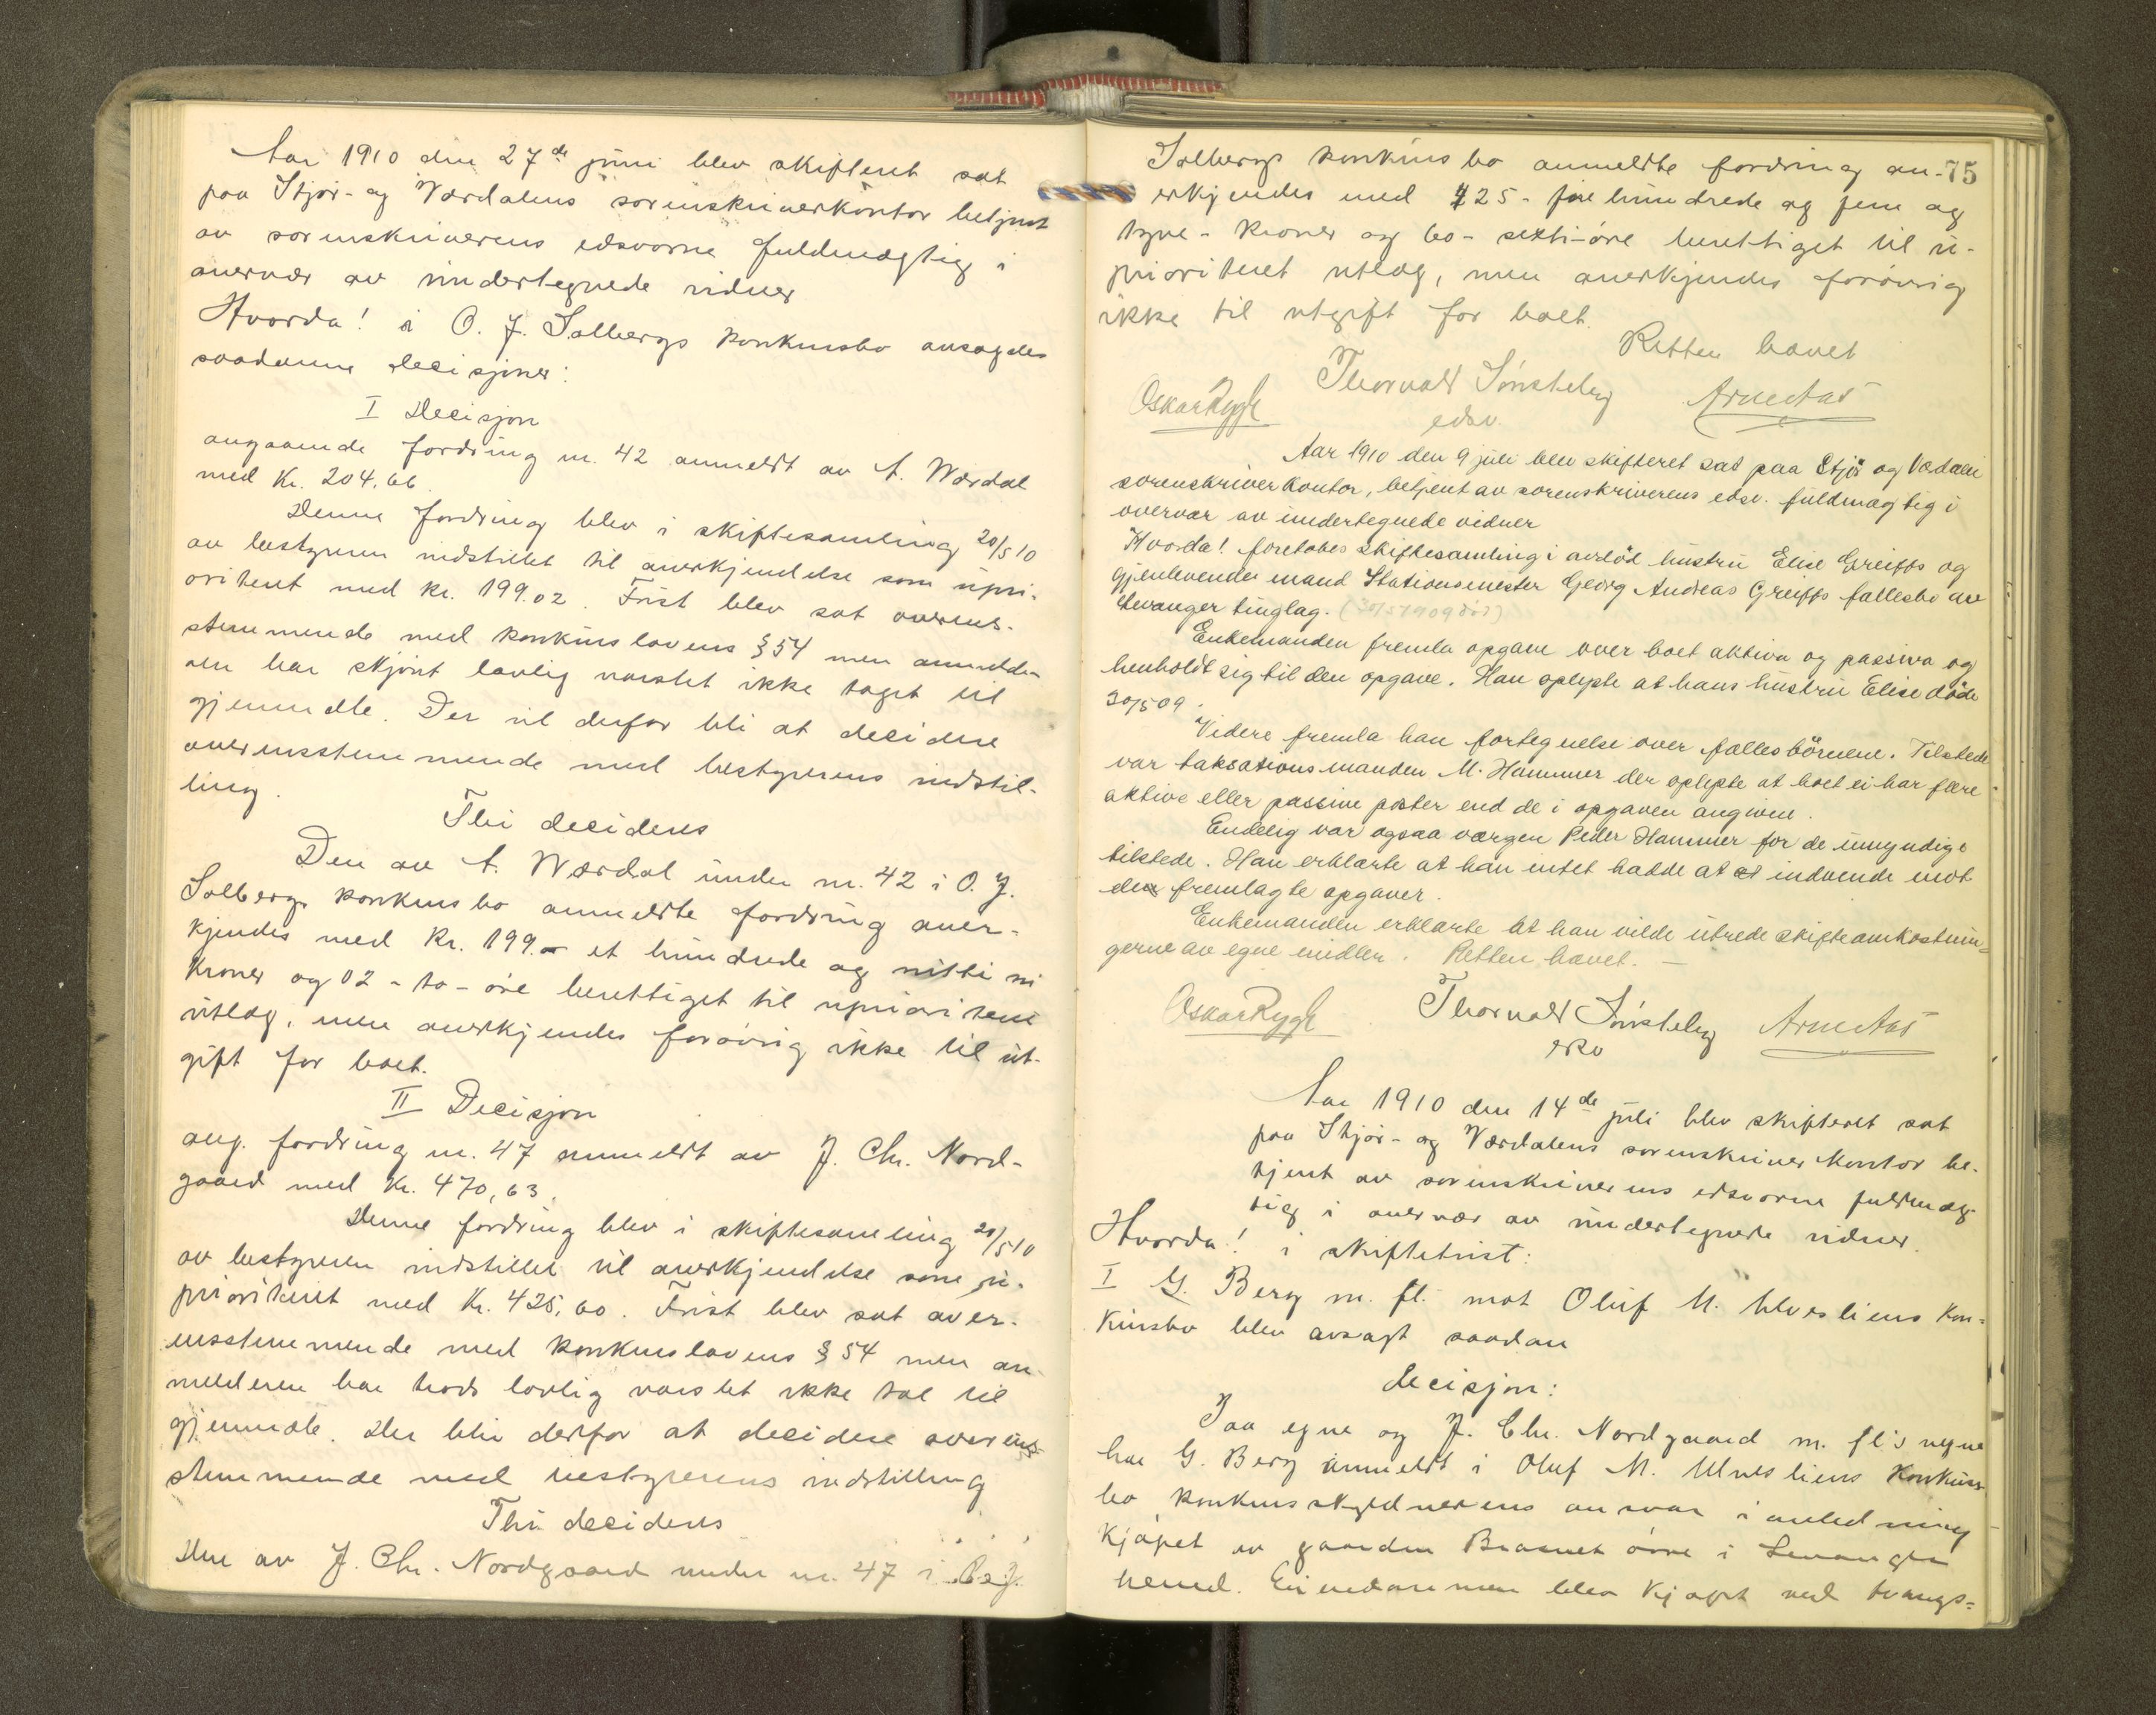 Aar 1910 den 27de juni blev skifteret sat
paa Stjør- og Værdalens sorenskriverkontor betjent
av sorenskriverens edsvorne fuldmægtig i
overvær av undertegnede vidner
Hvorda! i O. J. Solbergs konkursbo avsagdes
saadanne decisjoner:
I Decisjon
angaaende fordring nr. 42 anmeldt av A. Værdal
med Kr. 204.66.
Denne fordring blev i skiftesamling 20/5 10
av bestyreren indstillet til anerkjendelse som upri-
oritert med kr. 199.02. Frist blev sat overens-
stemmende med konkurslovens § 54 men anmelde-
ren har skjønt lovlig varslet ikke taget til
gjenmæle. Der vil derfor bli at decidere
overensstemmende med bestyrerens indstil-
ling.
Thi decideres
Den av A. Værdal under nr. 42 i O. J.
Solbergs konkursbo anmeldte fordring aner-
kjendes med Kr. 199.- et hundrede og nitti ni
Kroner og 02 - to - øre berettiget til uprioritert
utlæg, men anerkjendes forøvrig ikke til ut-
gift for boet.
II Decisjon
ang. fordring nr. 47 anmeldt av J. Chr. Nord-
gaard med Kr. 470,63.
Denne fordring blev i skiftesamling 20/5 10
av bestyreren indstillet til anerkjendelse som u-
prioritert med Kr. 425,60. Frist blev sat over-
ensstemmende med konkurslovens § 54 men an-
melderen har trods lovlig varslet ikke tat til
gjenmæle. Der blir derfor at decidere overens-
stemmende med bestyrerens indstilling
Thi decideres
Den av J. Chr. Nordgaard under nr. 47 i O. J.
75
Solbergs konkursbo anmeldte fordring an-
erkjendes med 425 - fire hundrede og fem og
tyve - Kroner og 60 - sexti - øre berettiget til u-
prioritert utlæg, men anerkjendes forøvrig
ikke til utgift for boet.
Retten hævet
Thorvald Sønsteby
edsv.
Oskar Rygh Arne Aas
Aar 1910 den 9 juli blev skifteret sat paa Stjør og Værdalens
sorenskriverkontor, betjent av sorenskriverens edsv. fuldmægtig i
overvær av undertegnede vidner
Hvorda! foretokes skiftesamling i avdød hustru Elise Greiffs og
gjenlevende mand Stationsmester Georg Andreas Greiffs fællesbo av
Levanger tinglag. (30/5 1909 død)
Enkemanden fremla opgave over boets aktiva og passiva og
henholdt sig til den opgave. Han oplyste at hans hustru Elise døde
30/5 09.
Videre fremla han fortegnelse over fællesbörnene. Tilstede
var taksationsmanden M. Hammer der oplyste at boet ei har flere
aktive eller passive poster end de i opgaven angivne.
Endelig var ogsaa værgen Peder Hammer for de umyndige
tilstede. Han erklærte at han intet hadde at indvende mot
de fremlagte opgaver.
Enkemanden erklærte at han vilde utrede skifteomkostnin-
gerne av egne midler. Retten hævet. -
Oskar Rygh Thorvald Sønsteby Arne Aas
edsv
Aar 1910 den 14de juli blev skifteret sat
paa Stjør- og Værdalens sorenskriverkontor be-
tjent av sorenskriverens edsvorne fuldmæg-
tig i overvær av undertegnede vidner.
Hvorda! i skiftetvist:
I G. Berg m. fl. mot Oluf M. Ulvesliens Kon-
kursbo blev avsagt saadan
decisjon:
Paa egne og J. Chr. Nordgaard m. fl's vegne
har G. Berg anmeldt i Oluf M. Ulvesliens Konkurs-
bo konkursskyldnerens ansvar i anledning
Kjøpet av gaarden øvre i Levanger
herred. Eiendommen blev kjøpt ved tvangs-